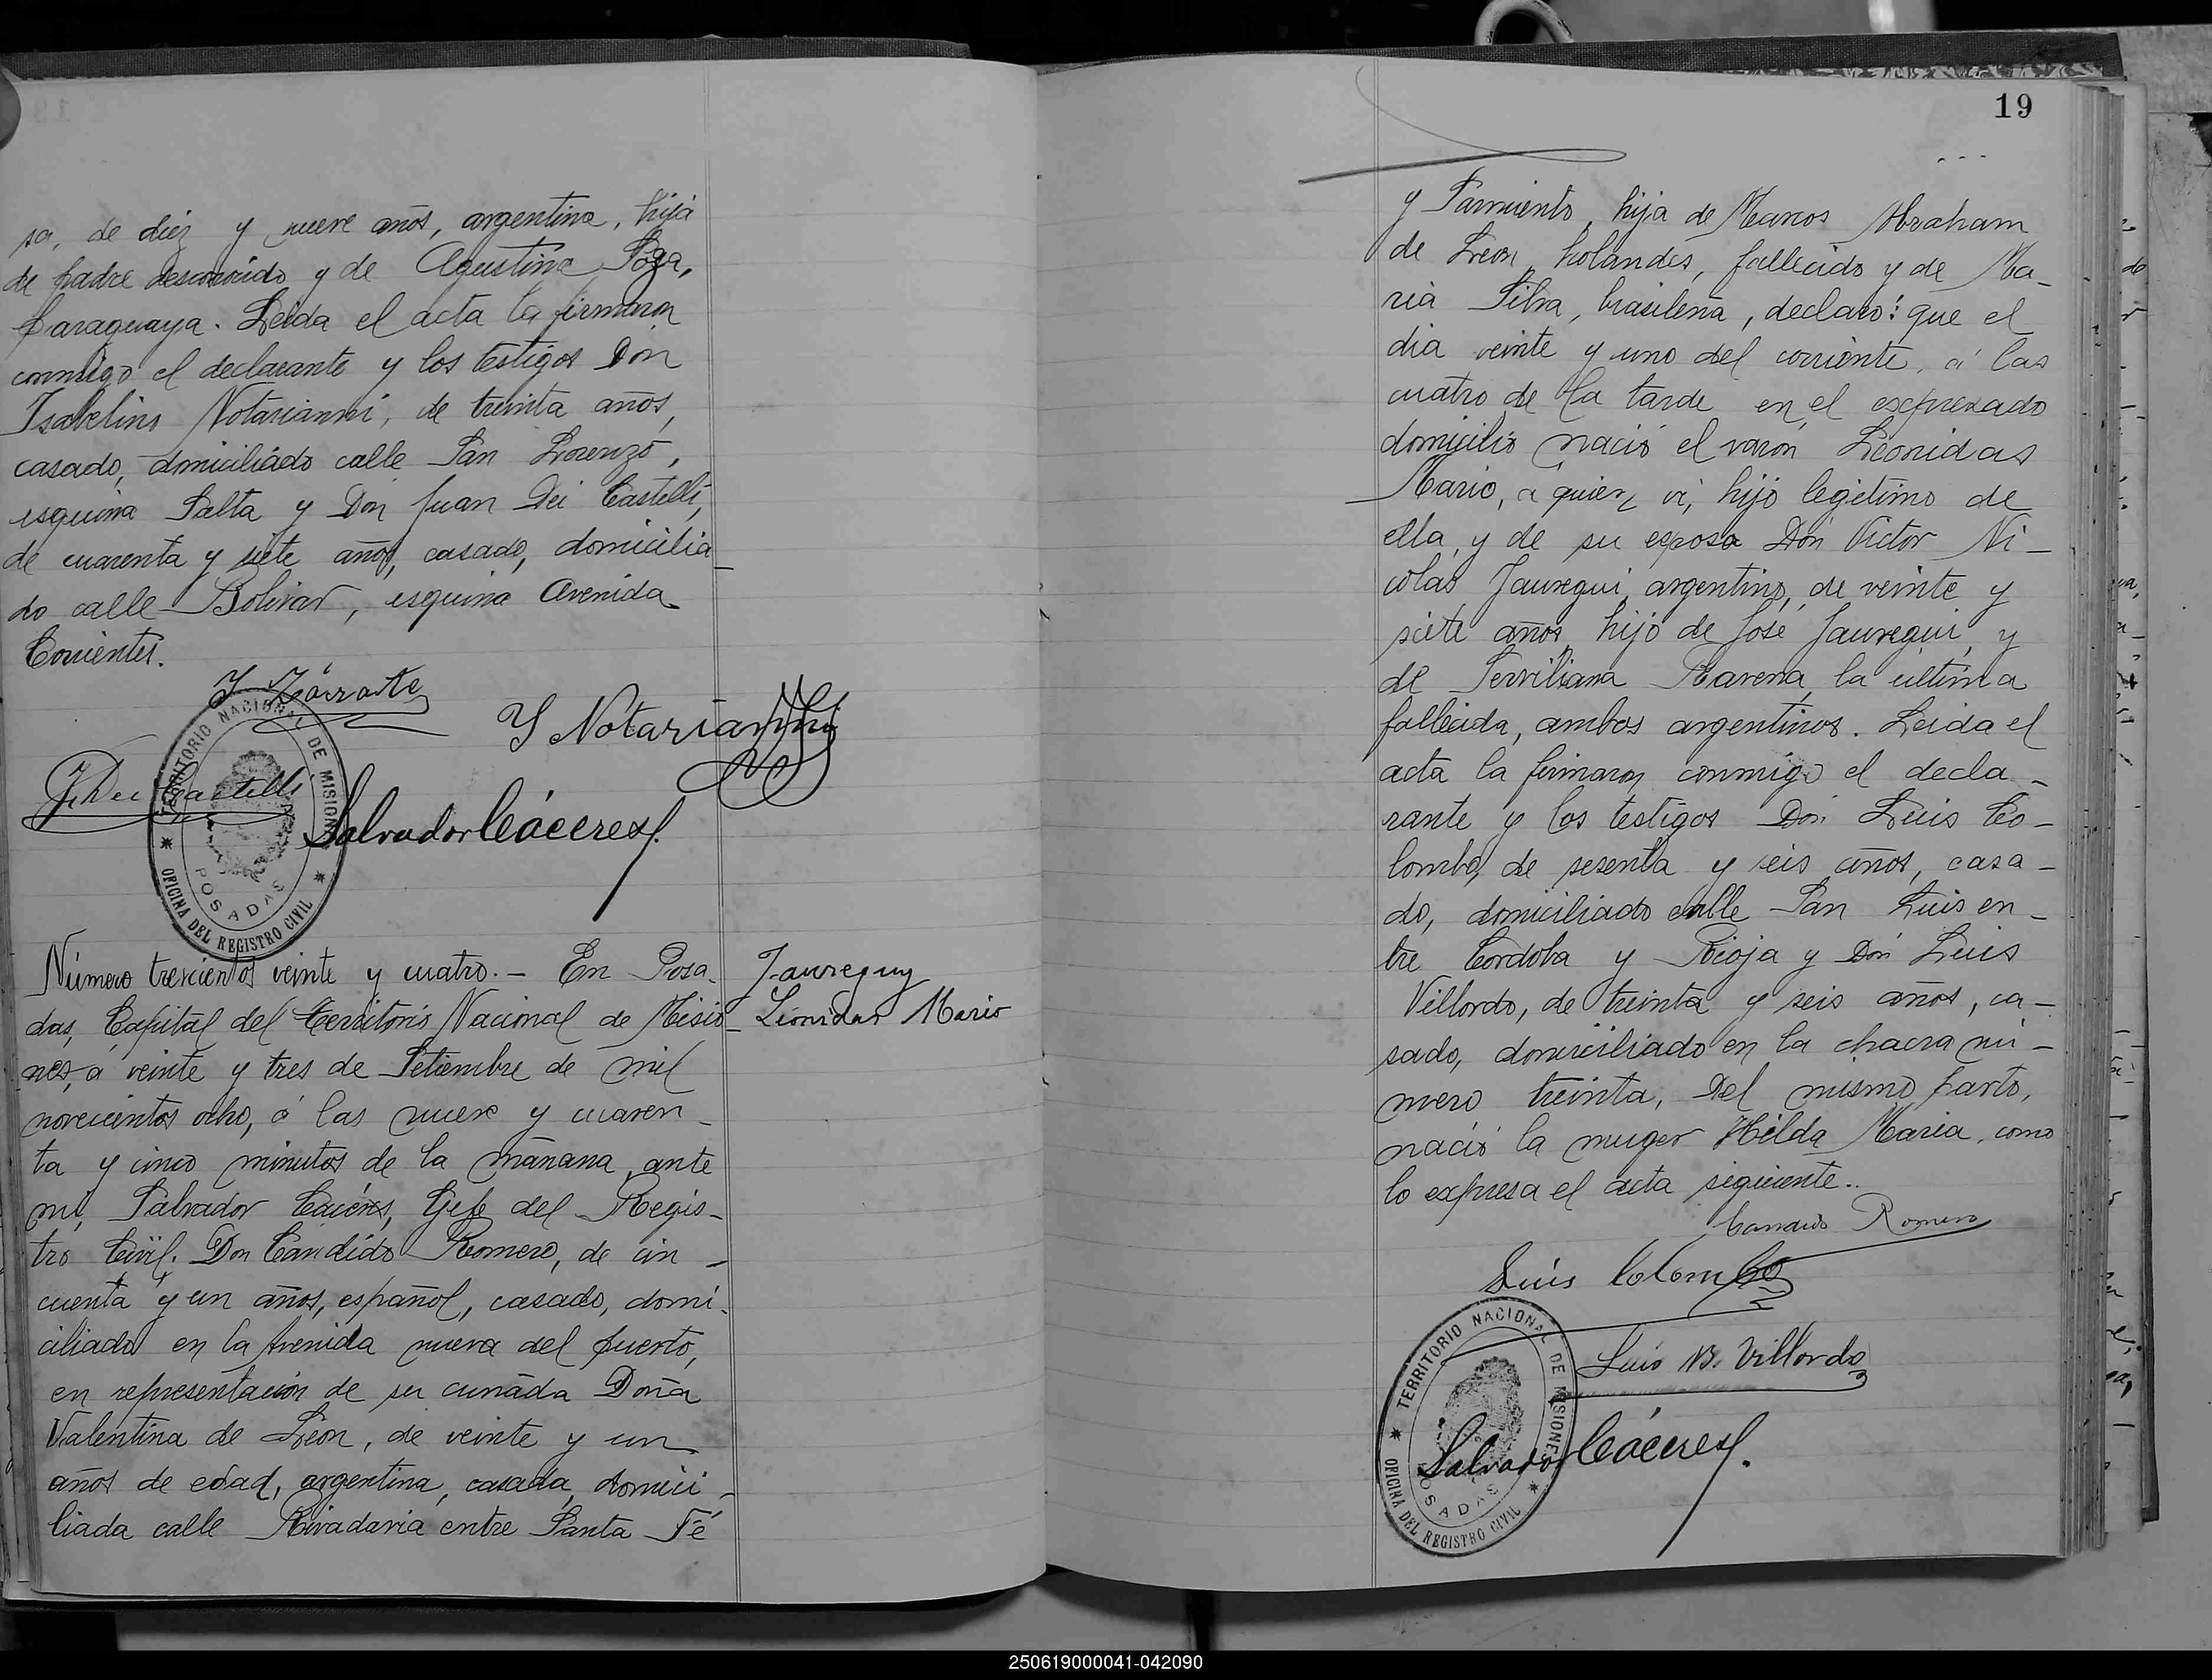 sa, de diez y nueve años, argentina, hija
de padre desconocido y de Agustina Soza,
paraguaya. Leida el acta la firmaron
conmigo el declarante y los testigos Don
Isabelino Notarianni, de treinta años,
casado, domiciliado calle San Lorenzo,
esquina Salta y Don Juan Dei Castelli,
de cuarenta y siete años, casado, domicilia
do calle Bolivar, esquina Avenida
Corrientes.
I Zárrate
I Notarianni
J. Dei Castelli
Salvador Cáceres
TERRITORIO NACIONAL DE MISIONES
POSADAS
OFICINA DEL REGISTRO CIVIL
Número trescientos veinte y cuatro.- En Posa
das, Capital del Territorio Nacional de Misio
nes, a veinte y tres de Setiembre de mil
novecientos ocho, á las nueve y cuaren-
ta y cinco minutos de la mañana, ante
mi, Salvador Cáceres, Gefe del Regis-
tro Civil. Don Candido Romero, de cin-
cuenta y un años, español, casado, domi-
ciliado en la Avenida nueva del puerto,
en representación de su cuñada Doña
Valentina de León, de veinte y un
años de edad, argentina, casada, domici-
liada calle Rivadavia entre Santa Fé
Jaureguy
Leonidas Mario
19
y Sarmiento, hija de Marcos Abraham
de Leon, holandés, fallecido y de Ma-
ria Silva, brasileña, declaró: que el
dia veinte y uno del corriente, á las
cuatro de la tarde en el espresado
domicilio nació el varón Leonidas
Mario, a quien vi, hijo legitimo de
ella, y de su esposo Don Victor Ni-
colas Jauregui, argentino, de veinte y
siete años, hijo de José Jauregui, y
de Serviliana Ravena, la ultima
fallecida, ambos argentinos. Leida el
acta la firmaron conmigo el decla-
rante y los testigos Don Luis Co-
lombo, de sesenta y seis años, casa-
do, domiciliado calle San Luis en-
tre Cordoba y Rioja y Don Luis
Villordo, de treinta y seis años, ca-
sado, domiciliado en la chacra nu-
mero treinta, Del mismo parto,
nació la muger Hilda Maria, como
lo expresa el acta siguiente..
Candido Romero
Luis Colombo
Luis B. Villordo
Salvador Cáceres
TERRITORIO NACIONAL DE MISIONES
POSADAS
OFICINA DEL REGISTRO CIVIL
250619000041-042090